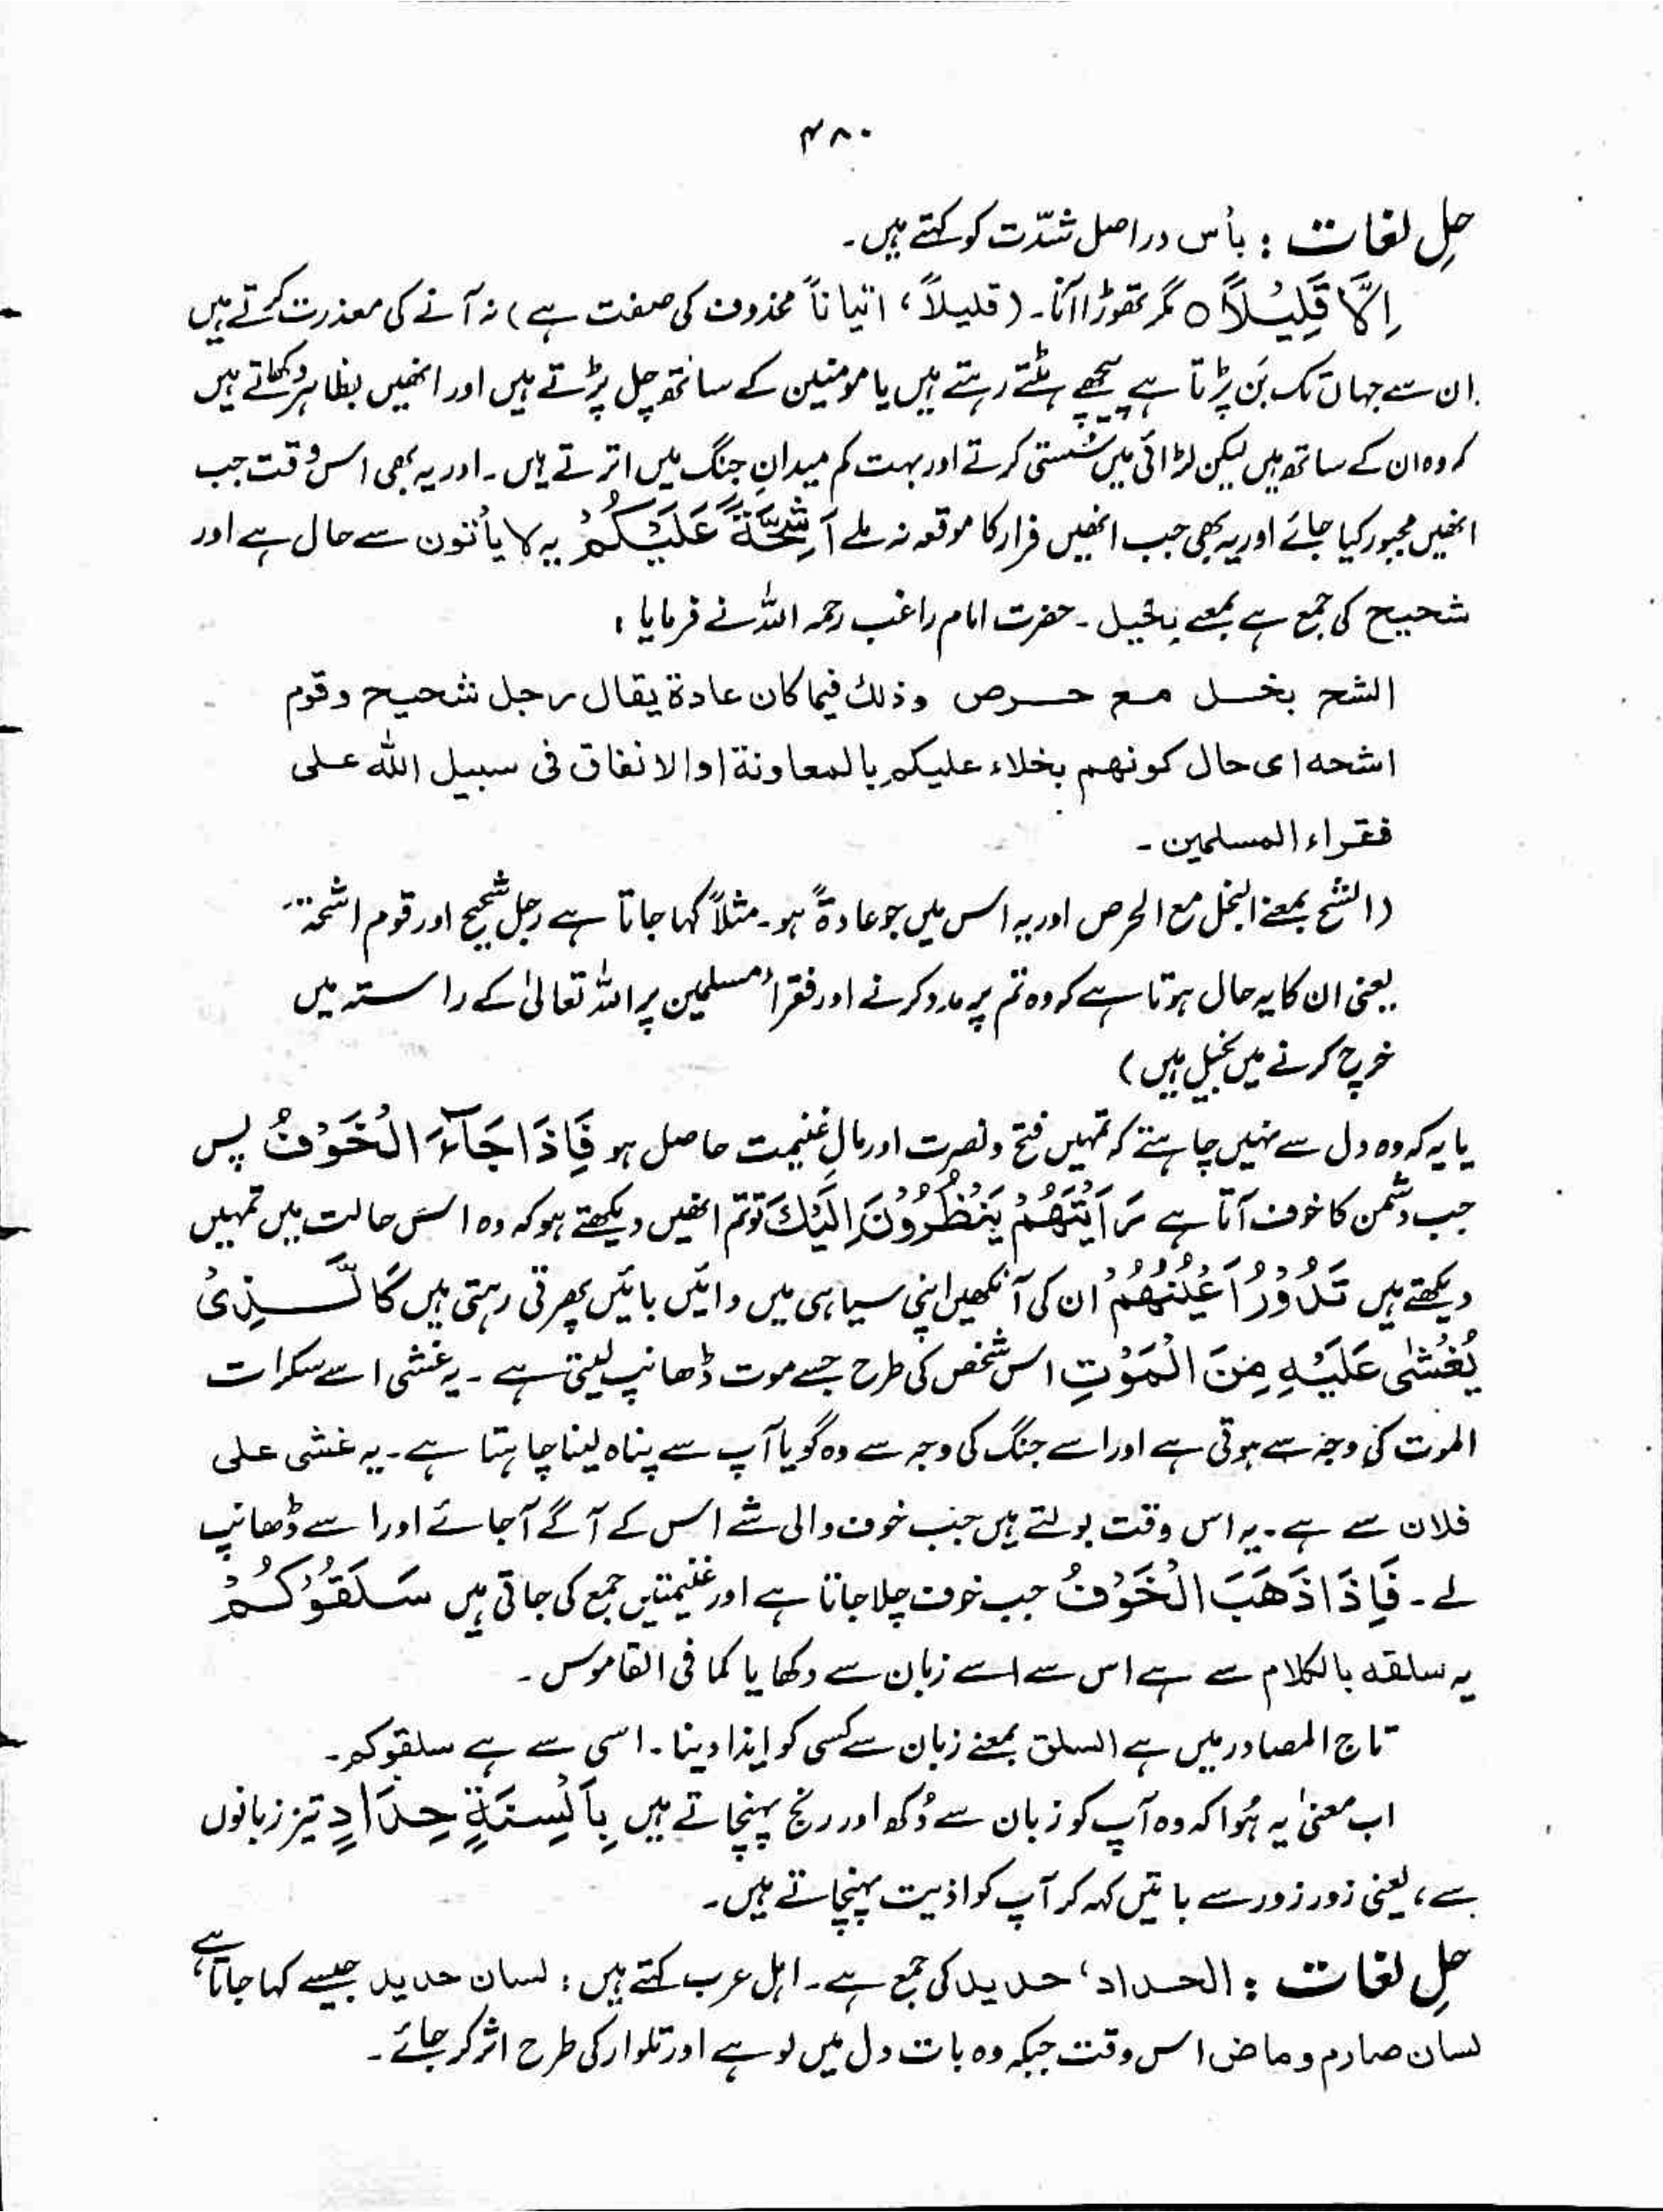 ۴۸۰
حلِ لغات : بأس دراصل شدّت کو کہتے ہیں۔
اِلَّا قَلِیْلًا ○ مگر تھوڑا آنا۔ (قلیلاً، اتیاناً محذوف کی صفت ہے) نہ آنے کی معذرت کرتے ہیں
ان سے جہاں تک بَن پڑتا ہے پیچھے ہٹتے رہتے ہیں یا مومنین کے ساتھ چل پڑتے ہیں اور انھیں بظاہر دکھاتے ہیں
کہ وہ ان کے ساتھ ہیں لیکن لڑائی میں سُستی کرتے اور بہت کم میدانِ جنگ میں اترتے ہیں۔ اور یہ بھی اس وقت جب
انھیں مجبور کیا جائے اور یہ بھی جب انھیں فرار کا موقعہ نہ ملے اَشِحَّةً عَلَیْکُمْ یہ لا یأتون سے حال ہے اور
شحیح کی جمع ہے بمعنے بخیل۔ حضرت امام راغب رحمہ اللہ نے فرمایا :
الشح بخل مع حرص وذلك فیما کان عادة یقال رجل شحیح وقوم
اشحه ای حال کونهم بخلاء علیکم بالمعاونة او الانفاق فی سبیل اللہ علی
فقراء المسلمین۔
(الشح بمعنے البخل مع الحرص اور یہ اس میں جو عادةً ہو۔ مثلاً کہا جاتا ہے رجل شحیح اور قوم اشحۃ
یعنی ان کا یہ حال ہوتا ہے کہ وہ تم پر مدد کرنے اور فقراء مسلمین پر اللہ تعالیٰ کے راستہ میں
خرچ کرنے میں بخیل ہیں)
یا یہ کہ وہ دل سے نہیں چاہتے کہ تمہیں فتح و نصرت اور مالِ غنیمت حاصل ہو فَاِذَا جَآءَ الْخَوْفُ پس
جب دشمن کا خوف آتا ہے رَاَیْتَهُمْ یَنْظُرُوْنَ اِلَیْكَ تو تم انھیں دیکھتے ہو کہ وہ اس حالت میں تمہیں
دیکھتے ہیں تَدُوْرُ اَعْیُنُهُمْ ان کی آنکھیں اپنی سیاہی میں دائیں بائیں پھرتی رہتی ہیں کَالَّذِیْ
یُغْشٰی عَلَیْهِ مِنَ الْمَوْتِ اس شخص کی طرح جسے موت ڈھانپ لیتی ہے۔ یہ غشی اسے سکرات
الموت کی وجہ سے ہوتی ہے اور اسے جنگ کی وجہ سے وہ گویا آپ سے پناہ لینا چاہتا ہے۔ یہ غشی علی
فلان سے ہے۔ یہ اس وقت بولتے ہیں جب خوف والی شے اس کے آگے آجائے اور اسے ڈھانپ
لے۔ فَاِذَا ذَهَبَ الْخَوْفُ جب خوف چلا جاتا ہے اور غنیمتیں جمع کی جاتی ہیں سَلَقُوْکُمْ
یہ سلقه بالکلام سے ہے اس سے اسے زبان سے دکھایا کما فی القاموس۔
تاج المصادر میں ہے السلق بمعنے زبان سے کسی کو ایذا دینا۔ اسی سے ہے سلقوکم۔
اب معنیٰ یہ ہُوا کہ وہ آپ کو زبان سے دُکھ اور رنج پہنچاتے ہیں بِاَلْسِنَةٍ حِدَادٍ تیز زبانوں
سے، یعنی زور زور سے باتیں کہہ کر آپ کو اذیت پہنچاتے ہیں۔
حلِ لغات : الحداد، حدید کی جمع ہے۔ اہل عرب کہتے ہیں : لسان حدید جیسے کہا جاتا ہے،
لسان صارم و ماض اس وقت جبکہ وہ بات دل میں لوہے اور تلوار کی طرح اثر کر جائے۔